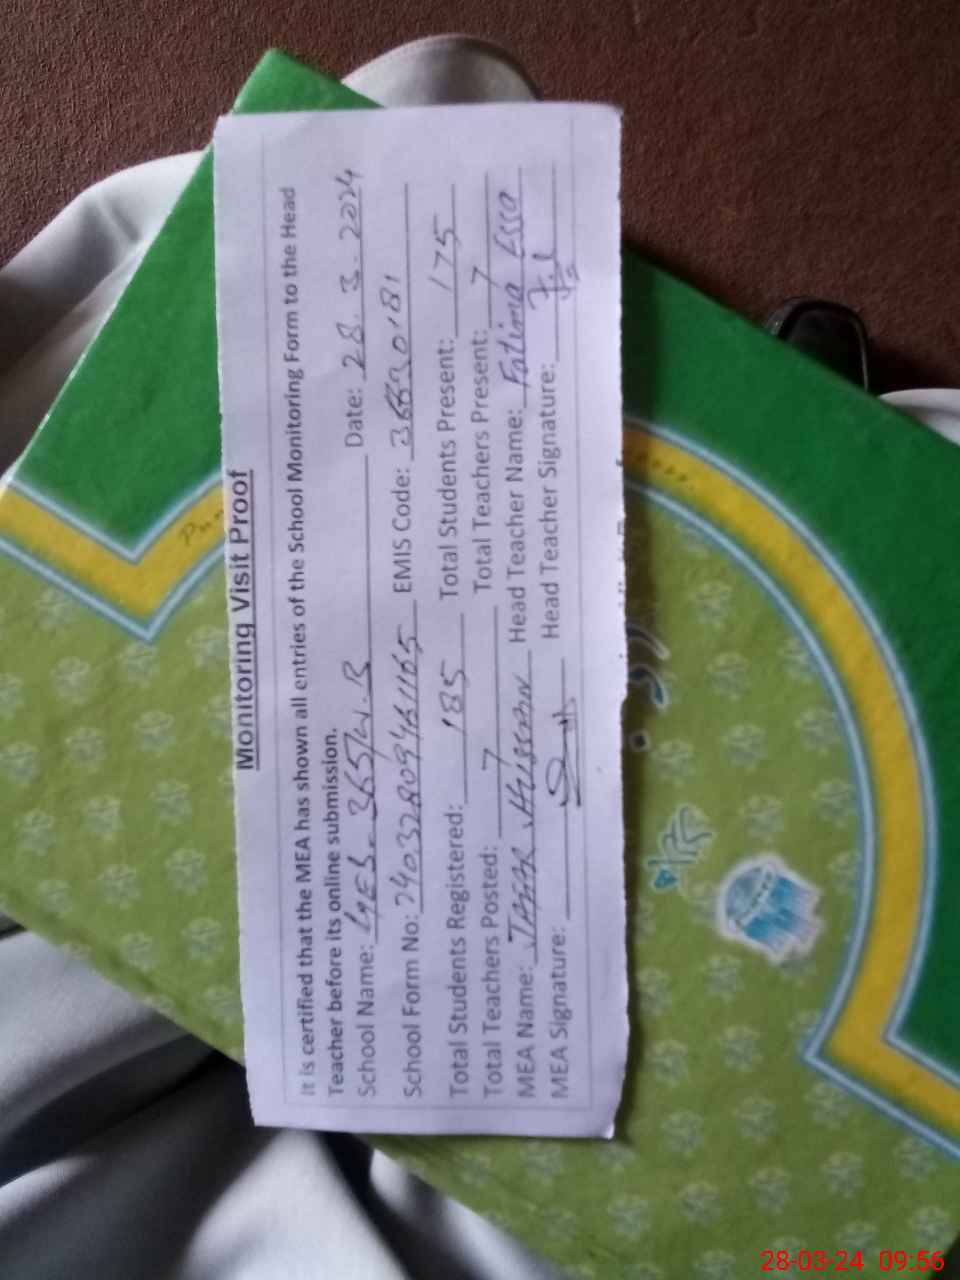 Monitoring Visit Proof
It is certified that the MEA has shown all entries of the School Monitoring Form to the Head
Teacher before its online submission.
School Name: GES-365/W.B Date: 28.3.2024
School Form No: EMIS Code: 36630181
Total Students Registered: 185 Total Students Present: 175
Total Teachers Posted: 7 Total Teachers Present: 7
MEA Name: Hussain Head Teacher Name: Fatima Essa
MEA Signature: Head Teacher Signature:
28-03-24 09:56